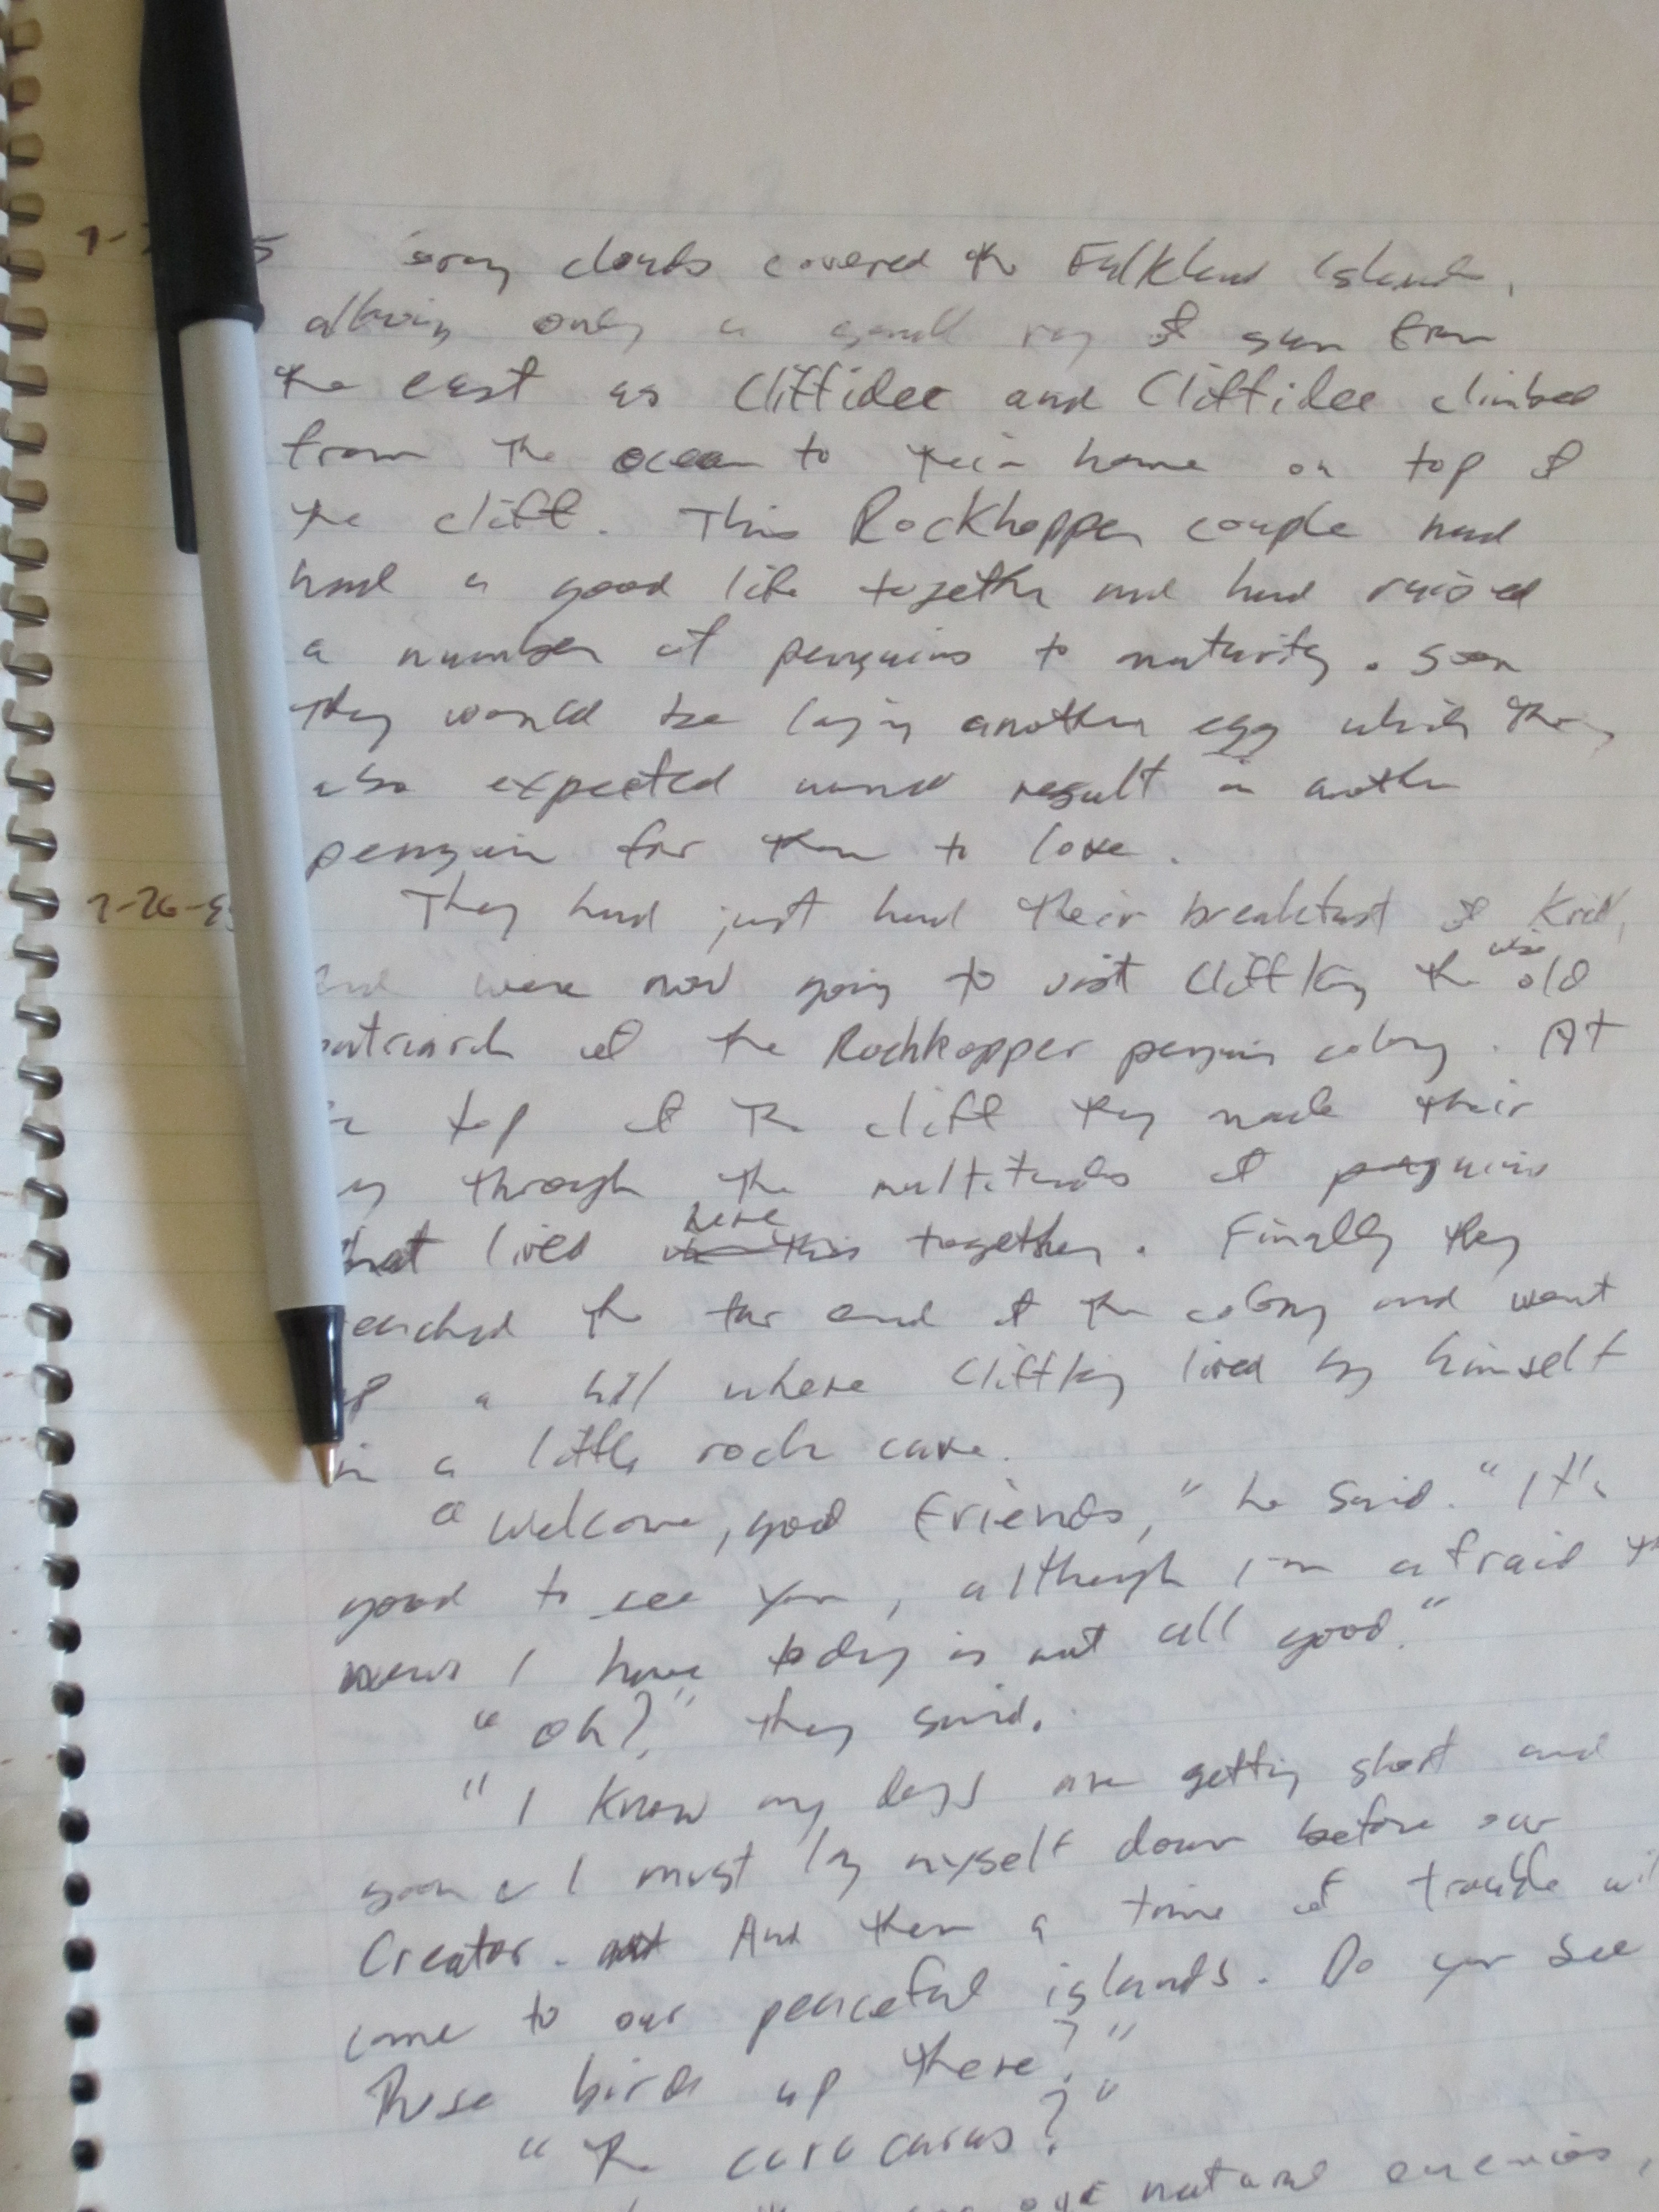 gray clouds covered the Falkland Islands,
allowing only a small ray of sun from
the east as Cliffidee and Cliffidee climbed
from the ocean to their home on top of
the cliff. This Rockhopper couple had
had a good life together and had raised
a number of penguins to maturity. Soon
they would be laying another egg which they
also expected would result in another
penguin for them to love.
7-26-9 They had just had their breakfast of Krill,
and were now going to visit Cliffking the wise old
patriarch of the Rockhopper penguin colony. At
top of the cliff they made their
through the multitudes of penguins
that lived here together. Finally they
reached the far end of the colony and went
up a hill where Cliffking lived by himself
in a little rock cave.
"Welcome, good friends," he said. "It's
good to see you, although I'm afraid th
news I have today is not all good."
"Oh?" they said.
"I know my days are getting short and
soon I must lay myself down before our
Creator. And then a time of trouble wil
come to our peaceful islands. Do you see
those birds up there?"
"The caracaras?"
our natural enemies,